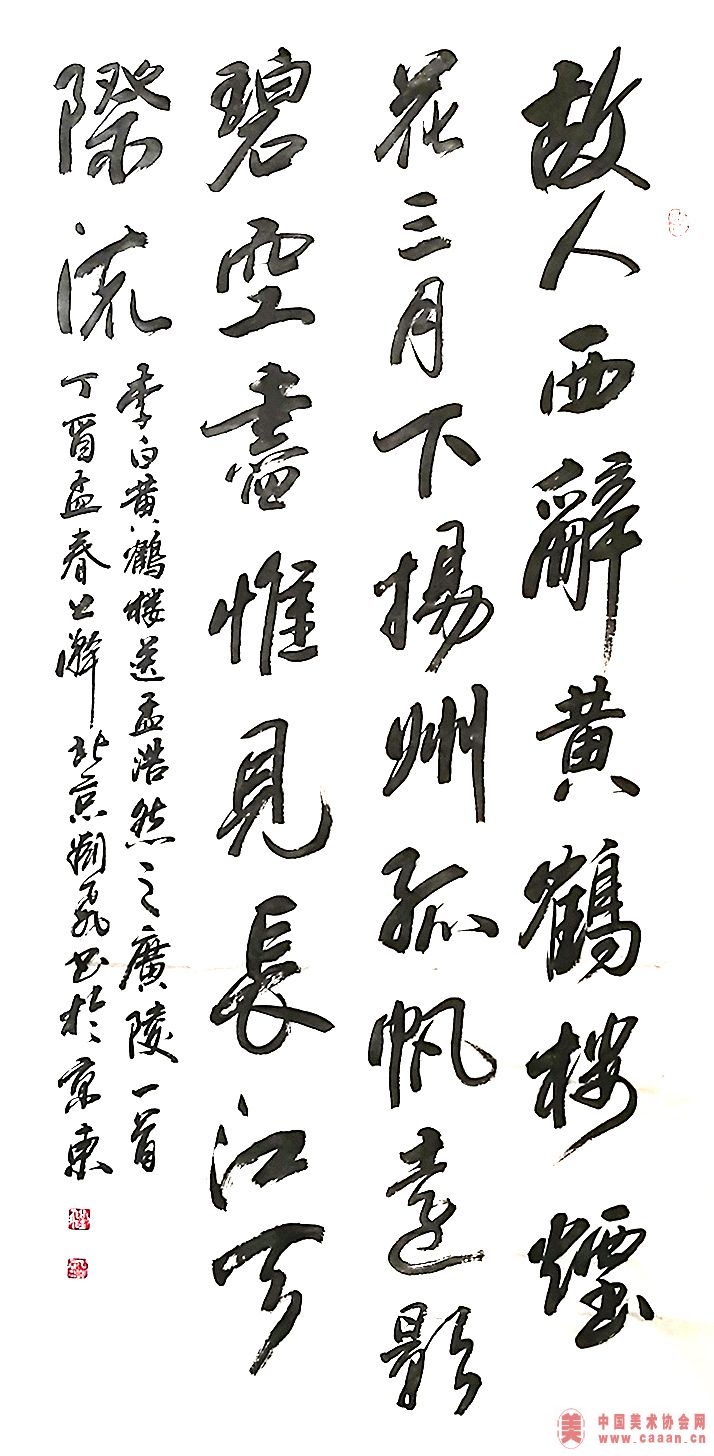 故人西辭黃鶴楼煙
花三月下揚州孤帆遠影
碧空盡惟見長江天
際流
李白黄鶴楼送孟浩然之廣陵一首
丁酉孟春上澣北京 书於京東
中国美术协会网
www.caaan.cn